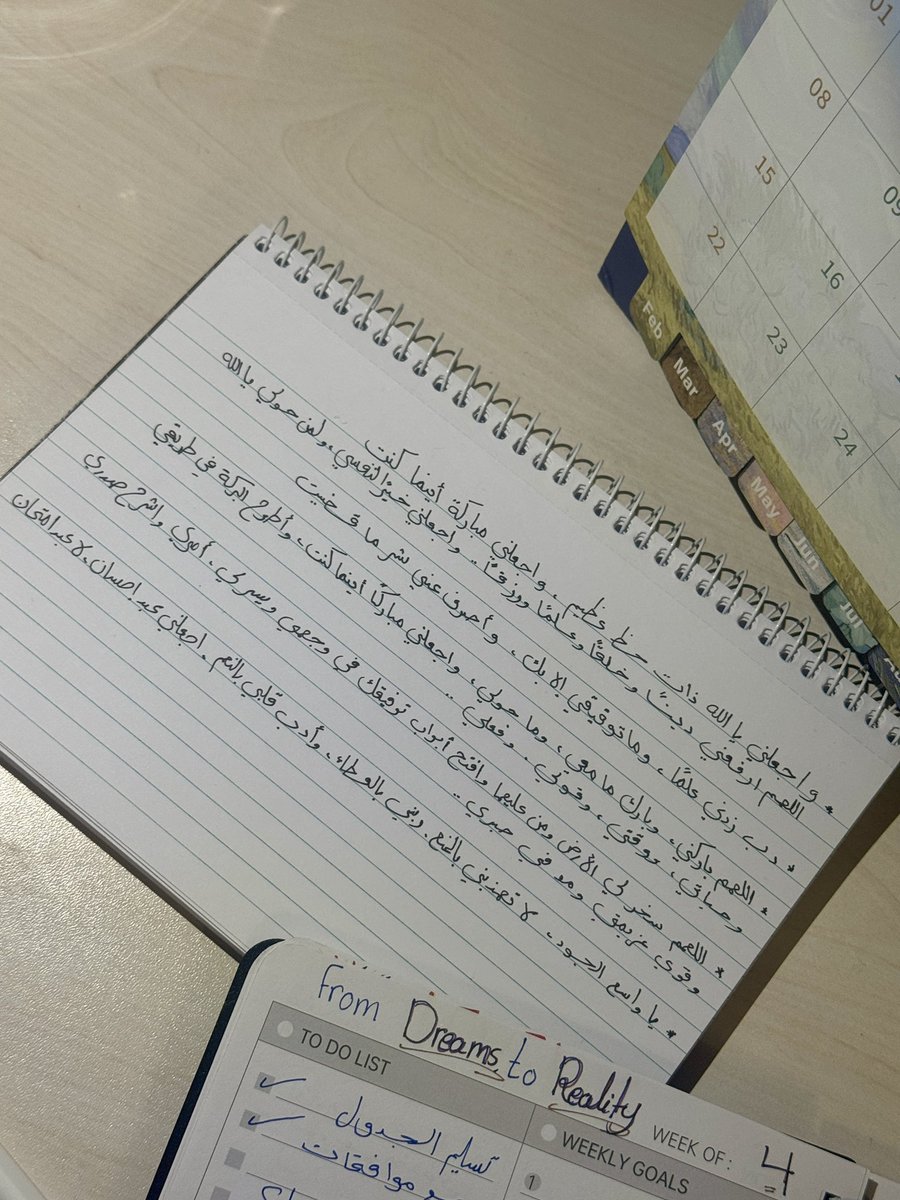 * واجعلني يا الله ذات حظ عظيم، واجعلني مباركة أينما كنت
اللهم ارفعني دينًا وخلقًا وعلمًا ورزقًا.. واجعلني خيرًا لنفسي، ولمن حولي يا الله
* رب زدني علمًا، وما توفيقي إلا بك، وأصرف عني شر ما قضيت
* اللهم باركني، وبارك ما معي، وما حولي، واجعلني مباركًا أينما كنت، وأطرح البركة في طريقي
وحياتي، ووقتي، وقوتي. وفعلي..
* اللهم سخر لي الأرض ومن عليها وافتح أبواب توفيقك في وجهي ويسر لي أمري واشرح صدري
وقوي عزيمتي ومد في صبري..
* يا واسع الجود، لا تهذبني بالمنع. ربني بالعطاء، وأدب قلبي بالنعم. اجعلني عبد إحسان، لا عبد امتحان
01
08
09
15
16
22
23
24
Feb
Mar
Apr
May
Jun
Jul
From Dreams to Reality
TO DO LIST
WEEK OF: 4
WEEKLY GOALS
1
تسليم الجدول
موافقات